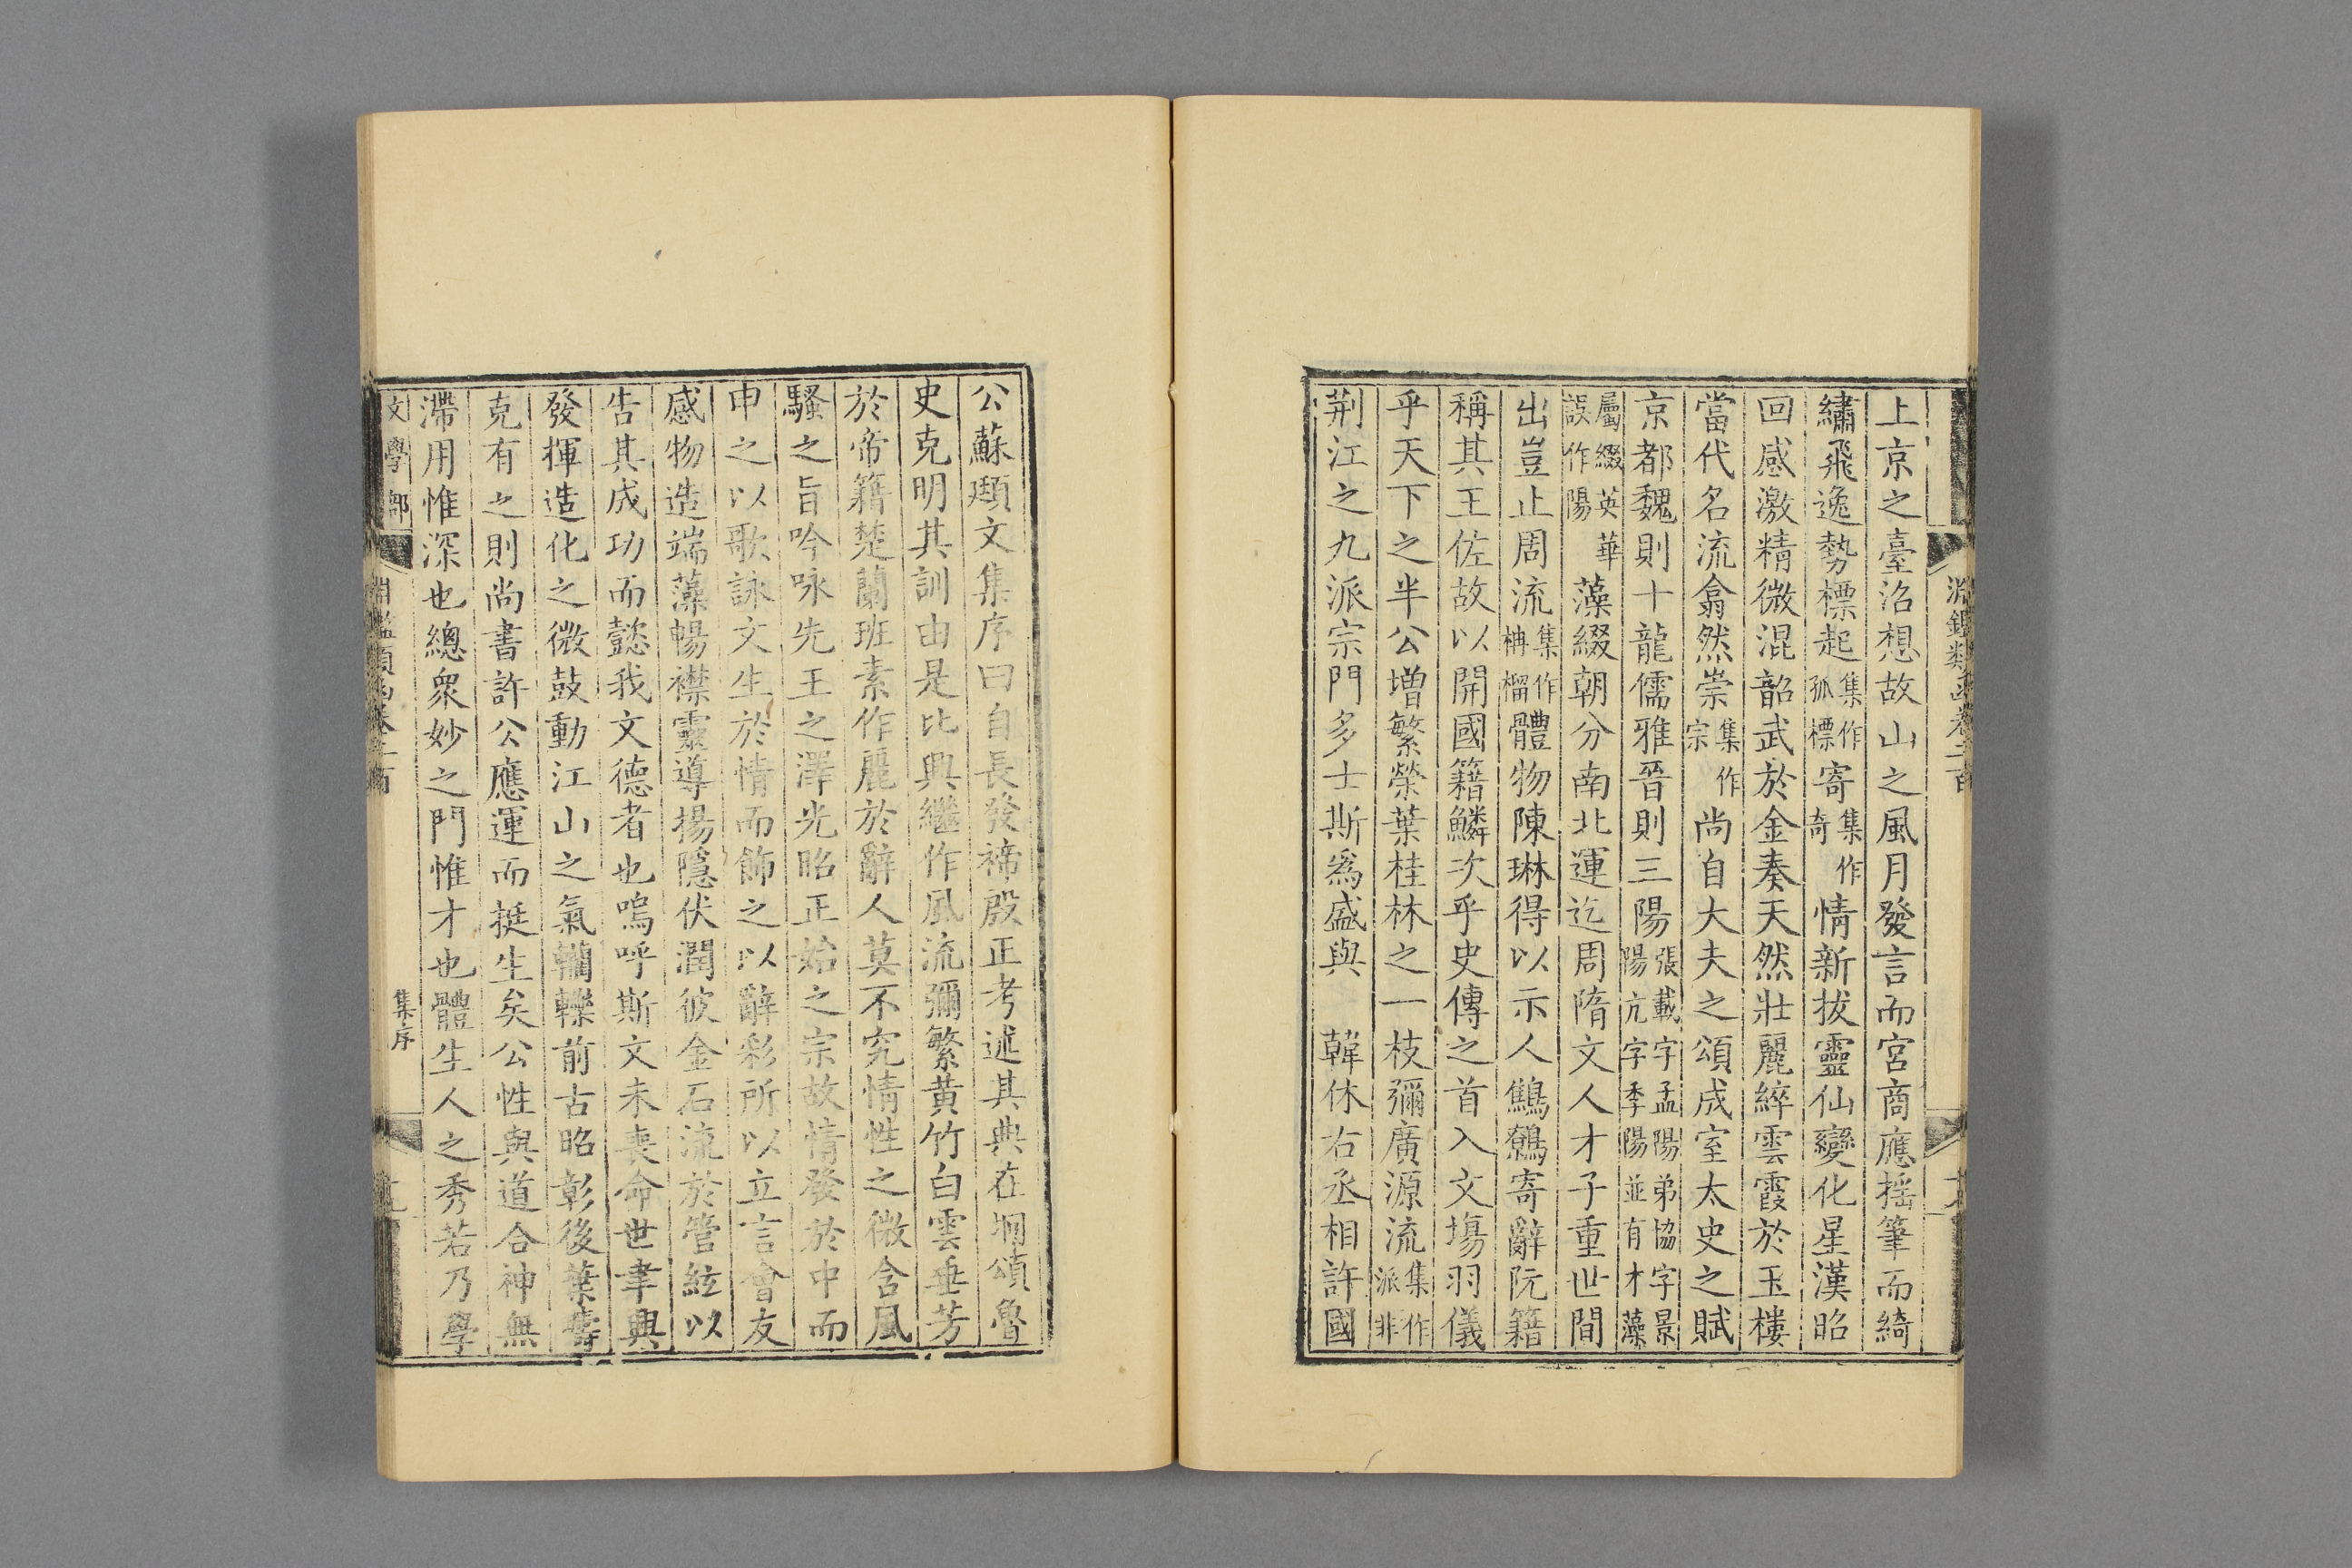 淵鑑類函卷二百
上京之臺沿想故山之風月發言而宮商應揺筆而綺
繡飛逸勢標起集作孤標寄集作奇情新拔靈仙變化星漢昭
回感激精微混韶武於金奏天然壯麗綷雲霞於玉樓
當代名流翕然崇集作宗尚自大夫之頌成室太史之賦
京都魏則十龍儒雅晉則三陽張載字孟陽弟協字景陽亢字季陽並有才藻
屬綴英華誤作陽藻綴朝分南北運迄周隋文人才子重世間
出豈止周流集作栴榴體物陳琳得以示人鷦鷯寄辭阮籍
稱其王佐故以開國籍鱗次乎史傳之首入文塲羽儀
乎天下之半公增繁榮葉桂林之一枝彌廣源流集作派非
荆江之九派宗門多士斯爲盛與　韓休右丞相許國
公蘇頲文集序曰自長發禘殷正考述其典在坰頌魯
史克明其訓由是比興繼作風流彌繁黃竹白雲垂芳
於帝籍楚蘭班素作麗於辭人莫不究情性之微含風
騷之旨吟咏先王之澤光昭正始之宗故情發於中而
申之以歌詠文生於情而飾之以辭彩所以立言會友
感物造端藻暢襟靈導揚隱伏潤彼金石流於管絃以
告其成功而懿我文德者也嗚呼斯文未喪命世聿興
發揮造化之微鼓動江山之氣轥轢前古昭彰後葉疇
克有之則尚書許公應運而挺生矣公性與道合神無
滯用惟深也總衆妙之門惟才也體生人之秀若乃學
文學部
淵鑑類函卷二百
集序